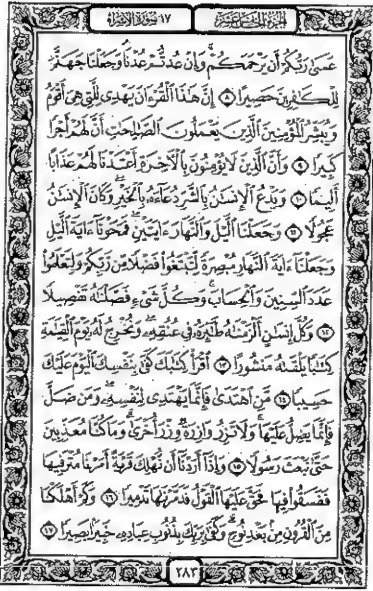 الجزء الخامس عشر ١٧ سورة الإسراء
عَسَىٰ رَبُّكُمْ أَن يَرْحَمَكُمْ ۚ وَإِنْ عُدتُّمْ عُدْنَا ۘ وَجَعَلْنَا جَهَنَّمَ
لِلْكَافِرِينَ حَصِيرًا ٨ إِنَّ هَٰذَا الْقُرْءَانَ يَهْدِي لِلَّتِي هِيَ أَقْوَمُ
وَيُبَشِّرُ الْمُؤْمِنِينَ الَّذِينَ يَعْمَلُونَ الصَّالِحَاتِ أَنَّ لَهُمْ أَجْرًا
كَبِيرًا ٩ وَأَنَّ الَّذِينَ لَا يُؤْمِنُونَ بِالْآخِرَةِ أَعْتَدْنَا لَهُمْ عَذَابًا
أَلِيمًا ١٠ وَيَدْعُ الْإِنسَانُ بِالشَّرِّ دُعَاءَهُ بِالْخَيْرِ ۖ وَكَانَ الْإِنسَانُ
عَجُولًا ١١ وَجَعَلْنَا اللَّيْلَ وَالنَّهَارَ ءَايَتَيْنِ ۖ فَمَحَوْنَا ءَايَةَ اللَّيْلِ
وَجَعَلْنَا ءَايَةَ النَّهَارِ مُبْصِرَةً لِّتَبْتَغُوا فَضْلًا مِّن رَّبِّكُمْ وَلِتَعْلَمُوا
عَدَدَ السِّنِينَ وَالْحِسَابَ ۚ وَكُلَّ شَيْءٍ فَصَّلْنَاهُ تَفْصِيلًا
١٢ وَكُلَّ إِنسَانٍ أَلْزَمْنَاهُ طَائِرَهُ فِي عُنُقِهِ ۖ وَنُخْرِجُ لَهُ يَوْمَ الْقِيَامَةِ
كِتَابًا يَلْقَاهُ مَنشُورًا ١٣ اقْرَأْ كِتَابَكَ كَفَىٰ بِنَفْسِكَ الْيَوْمَ عَلَيْكَ
حَسِيبًا ١٤ مَّنِ اهْتَدَىٰ فَإِنَّمَا يَهْتَدِي لِنَفْسِهِ ۖ وَمَن ضَلَّ
فَإِنَّمَا يَضِلُّ عَلَيْهَا ۚ وَلَا تَزِرُ وَازِرَةٌ وِزْرَ أُخْرَىٰ ۗ وَمَا كُنَّا مُعَذِّبِينَ
حَتَّىٰ نَبْعَثَ رَسُولًا ١٥ وَإِذَا أَرَدْنَا أَن نُّهْلِكَ قَرْيَةً أَمَرْنَا مُتْرَفِيهَا
فَفَسَقُوا فِيهَا فَحَقَّ عَلَيْهَا الْقَوْلُ فَدَمَّرْنَاهَا تَدْمِيرًا ١٦ وَكَمْ أَهْلَكْنَا
مِنَ الْقُرُونِ مِن بَعْدِ نُوحٍ ۗ وَكَفَىٰ بِرَبِّكَ بِذُنُوبِ عِبَادِهِ خَبِيرًا بَصِيرًا ١٧
٢٨٣